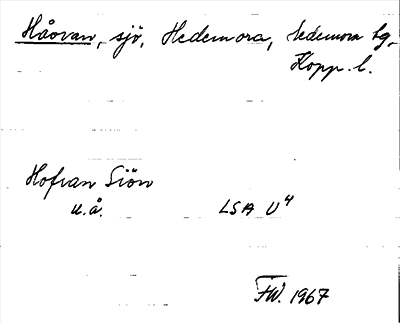 Håovan, sjö, Hedemora, Hedemora tg,
Kopp. l.
Hofvan Siön
u.å. LSA U⁴
FW. 1967